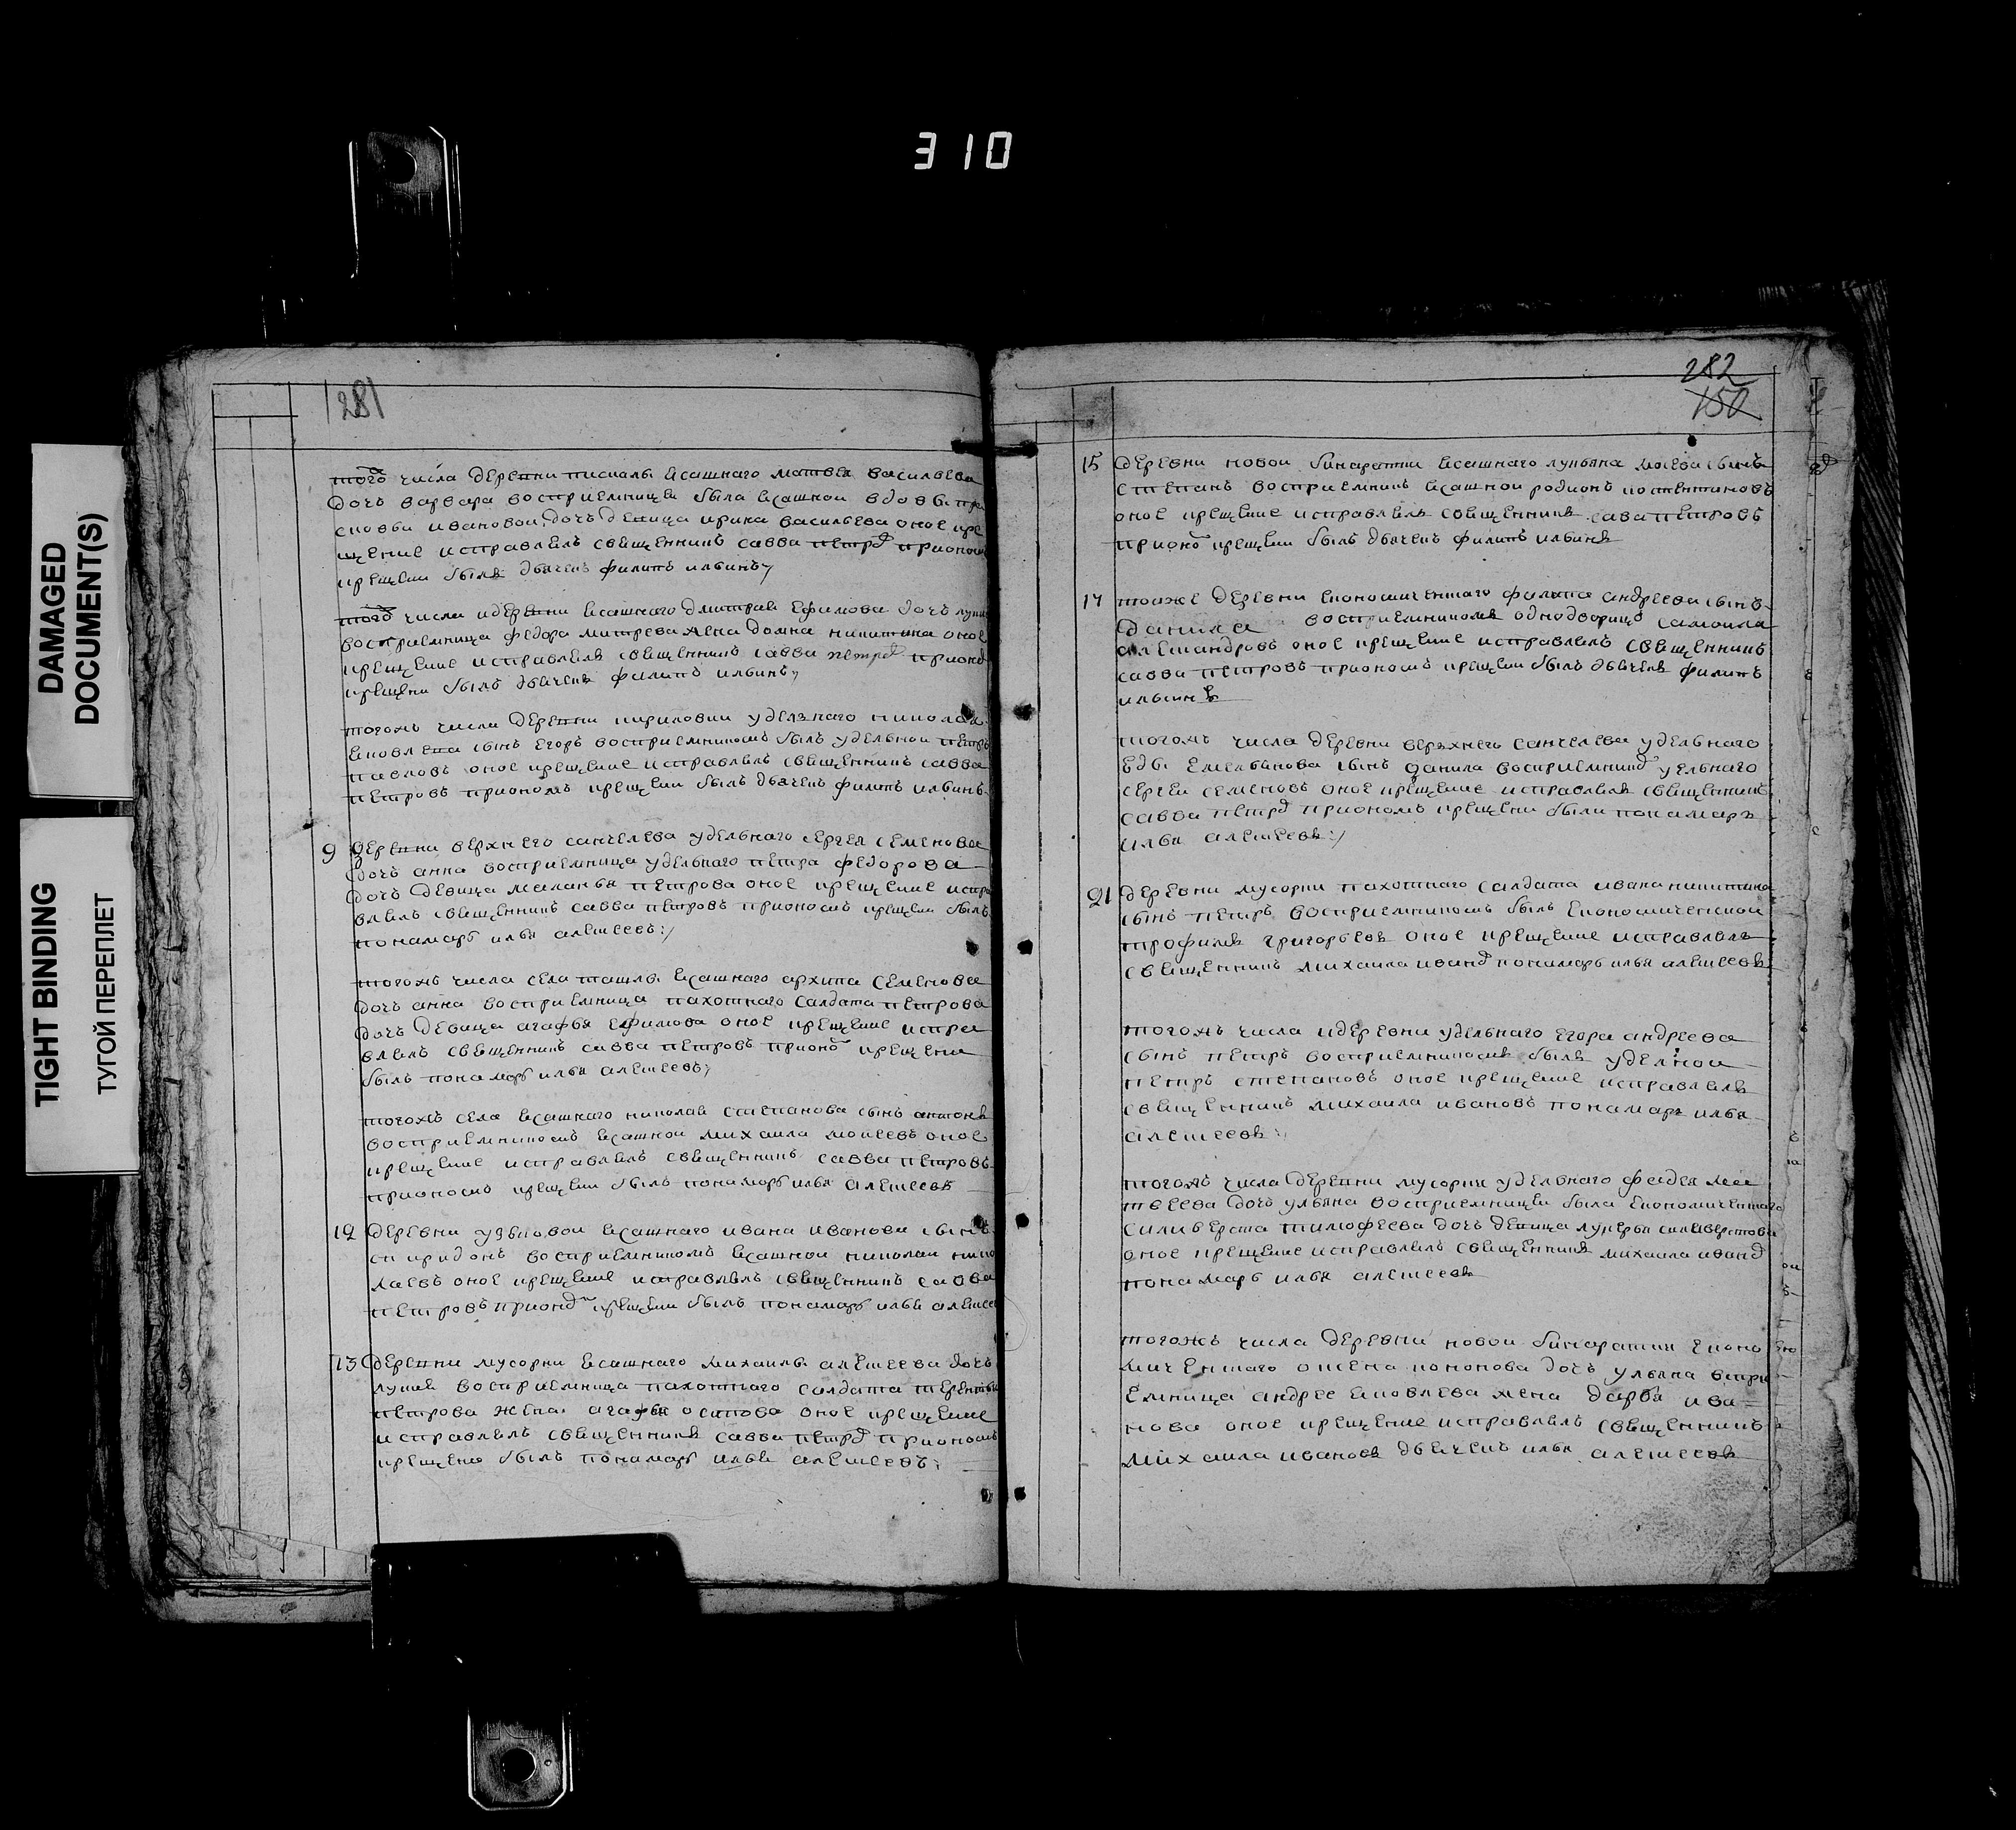 310
DAMAGED
DOCUMENT(S)
TIGHT BINDING
ТУГОЙ ПЕРЕПЛЕТ
281
того числа деревни писмалы ясашнаго матвея васильева
дочь варвара восприемницеи была ясашнои вдовы пра
сковьи ивановои дочь девица ирина васильева оное кре
щение исправлялъ священникъ савва петро прионом
крещени былъ дьячекъ филипъ ильинъ
того числа идеревни ясашнаго дмитрея ефимова дочь лукия
восприемница федора митрева жена домна никитина оное
крещение исправлялъ священникъ савва петро прионо
крещени былъ дьячекъ филипъ ильинъ
тогожъ числа деревни кириловки удельнаго николая
яковлева сынъ егоръ восприемникомъ былъ удельнои петръ
павловъ оное крещение исправлялъ священникъ савва
петровъ приономъ крещени былъ дьячекъ филипъ ильинъ
9 деревни верхнего санчелева удельнаго сергея семенова
дочь анна восприемница удельнаго петра федорова
дочь девица маланья петрова оное крещение испра
влялъ священникъ савва петровъ приономъ крещени былъ
понамарь илья алексеевъ
тогожъ числа села ташлы ясашнаго архипа семенова
дочь анна восприемница пахотнаго салдата петрова
дочь девица агафья ефимова оное крещение испра
влялъ священникъ савва петровъ приономъ крещени
былъ понамарь илья алексеевъ
тогожъ села ясашнаго николая степанова сынъ антонъ
восприемникомъ ясашнои михаила моисеевъ оное
крещение исправлялъ священникъ савва петровъ
приономъ крещени былъ понамарь илья алексеевъ
12 деревни узьковои ясашнаго ивана иванова сынъ
спиридонъ восприемникомъ ясашнои николаи нико
лаевъ оное крещение исправлялъ священникъ савва
петровъ приономъ крещени былъ понамарь илья алексеев
13 деревни мусорки ясашнаго михаилы алексеева дочь
лукия восприемница пахотнаго салдата терентья
петрова жена агафья осипова оное крещение
исправлялъ священникъ савва петро прионом
крещению былъ понамарь илья алексеевъ
282
150
15 деревни новои бинаратки ясашнаго лукьяна моисева сынъ
степанъ восприемникъ ясашнои родионъ костентиновъ
оное крещение исправлялъ священникъ сава петровъ
прионо крещени былъ дьячекъ филипъ ильинъ
17 тоиже деревни економическаго филипа андреева сынъ
данила восприемникомъ однодворицъ самоила
александровъ оное крещение исправлялъ священникъ
савва петровъ прионом крещени былъ дьячекъ филипъ
ильинъ
тогожъ числа деревни верхнего санчелева удельнаго
емельянова сынъ данила восприемнико уельнаго
сергеи семеновъ оное крещение исправлялъ священникъ
савва петро прионом крещени были понамарь
илья алексеевъ
21 деревни мусорки пахотнаго салдата ивана никитина
сынъ петръ восприемникомъ былъ економическои
трофимъ григорьевъ оное крещение исправлялъ
священникъ михаила ивано понамарь илья алексеевъ
тогожъ числа идеревни удельнаго егора андреева
сынъ петръ восприемникомъ былъ уделнои
петръ степановъ оное крещение исправлялъ
священникъ михаила ивановъ понамарь илья
алексеевъ
тогожъ числа деревни мусорки удельнаго фадея ма
твеева дочь ульяна восприемницеи была економическаго
силиверста тимофеева дочь девица лукерья силиверстова
оное крещение исправлялъ священникъ михаила ивано
понамарь илья алексеевъ
тогожъ числа деревни новои бинаратки еконо
мическаго кононова дочь ульяна воспри
емница андрее яковлева жена дарья ива
нова оное крещение исправлялъ священникъ
михаила ивановъ дьячекъ илья алексеевъ